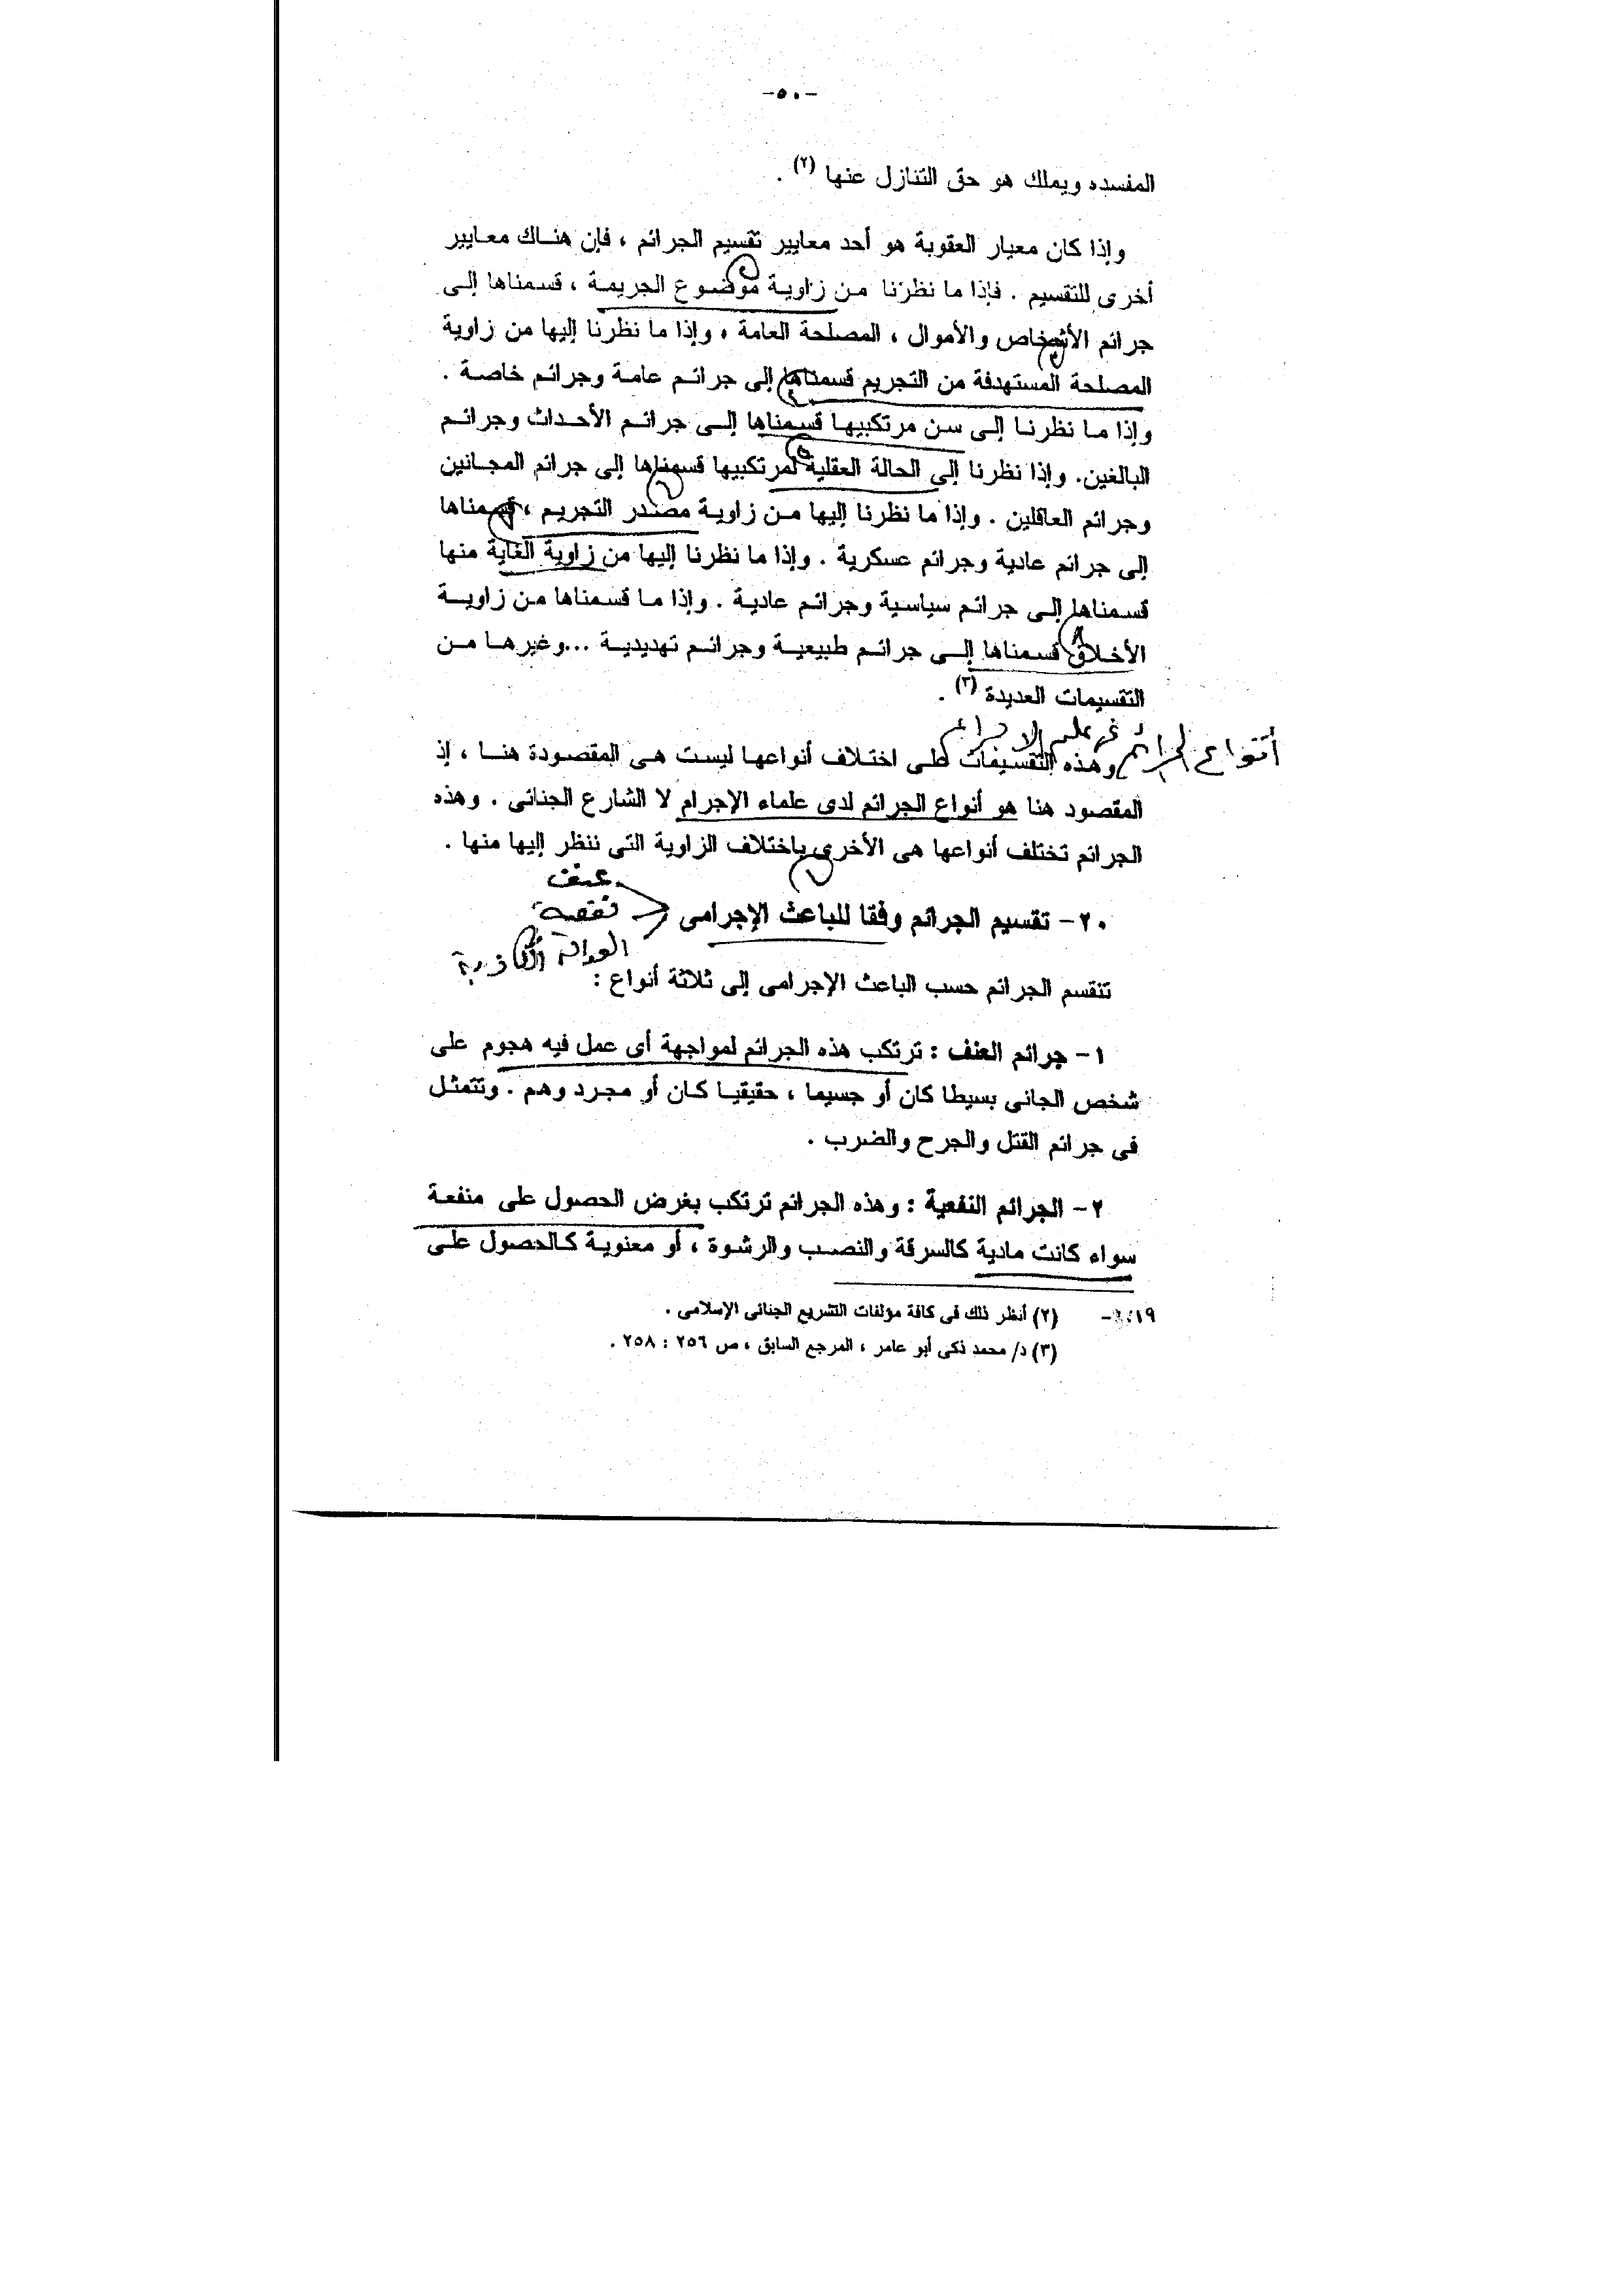 -٥٠-
المفسده ويملك هو حق التنازل عنها (٢) .
وإذا كان معيار العقوبة هو أحد معايير تقسيم الجرائم ، فإن هناك معايير
أخرى للتقسيم . فإذا ما نظرنا من زاوية موضوع الجريمة ، قسمناها إلى
جرائم الأشخاص والأموال ، المصلحة العامة ، وإذا ما نظرنا إليها من زاوية
المصلحة المستهدفة من التجريم قسمناها إلى جرائم عامة وجرائم خاصة .
وإذا ما نظرنا إلى سن مرتكبيها قسمناها إلى جرائم الأحداث وجرائم
البالغين. وإذا نظرنا إلى الحالة العقلية لمرتكبيها قسمناها إلى جرائم المجانين
وجرائم العاقلين . وإذا ما نظرنا إليها من زاوية مصدر التجريم ، قسمناها
إلى جرائم عادية وجرائم عسكرية . وإذا ما نظرنا إليها من زاوية الغاية منها
قسمناها إلى جرائم سياسية وجرائم عادية . وإذا ما قسمناها من زاوية
الأخلاق قسمناها إلى جرائم طبيعية وجرائم تهديدية ...وغيرها من
التقسيمات العديدة (٣) .
أنواع الجرائم في علم الاجرام
وهذه التقسيمات على اختلاف أنواعها ليست هى المقصودة هنا ، إذ
المقصود هنا هو أنواع الجرائم لدى علماء الإجرام لا الشارع الجنائى . وهذه
الجرائم تختلف أنواعها هى الأخرى باختلاف الزاوية التى ننظر إليها منها .
عنف
٢٠- تقسيم الجرائم وفقا للباعث الإجرامى
نفعية
العدالة الكاذبة
تنقسم الجرائم حسب الباعث الإجرامى إلى ثلاثة أنواع :
١- جرائم العنف : ترتكب هذه الجرائم لمواجهة أى عمل فيه هجوم على
شخص الجانى بسيطا كان أو جسيما ، حقيقيا كان أو مجرد وهم . وتتمثل
فى جرائم القتل والجرح والضرب .
٢- الجرائم النفعية : وهذه الجرائم ترتكب بغرض الحصول على منفعة
سواء كانت مادية كالسرقة والنصب والرشوة ، أو معنوية كالحصول على
(٢) أنظر ذلك فى كافة مؤلفات التشريع الجنائى الإسلامى .
(٣) د/ محمد ذكى أبو عامر ، المرجع السابق ، ص ٢٥٦ : ٢٥٨ .